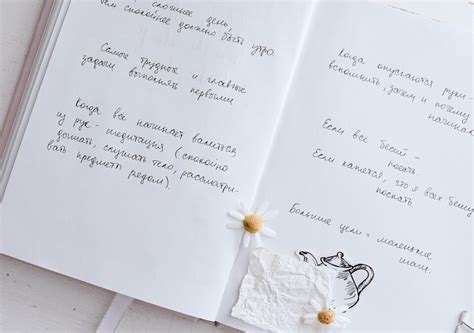 сложнее день,
тем спокойнее должно быть утро.
Самые трудные и главные
задачи выполнять первыми.
Когда всё начинает валиться
из рук - медитация (спокойно
дышать, слушать тело, рассматри-
вать предметы рядом).
Когда опускаются руки -
вспомнить, зачем и почему
начинал
Если все бесит -
поспать
Если кажется, что я всех бешу
поспать
Большие цели = маленькие
шаги.